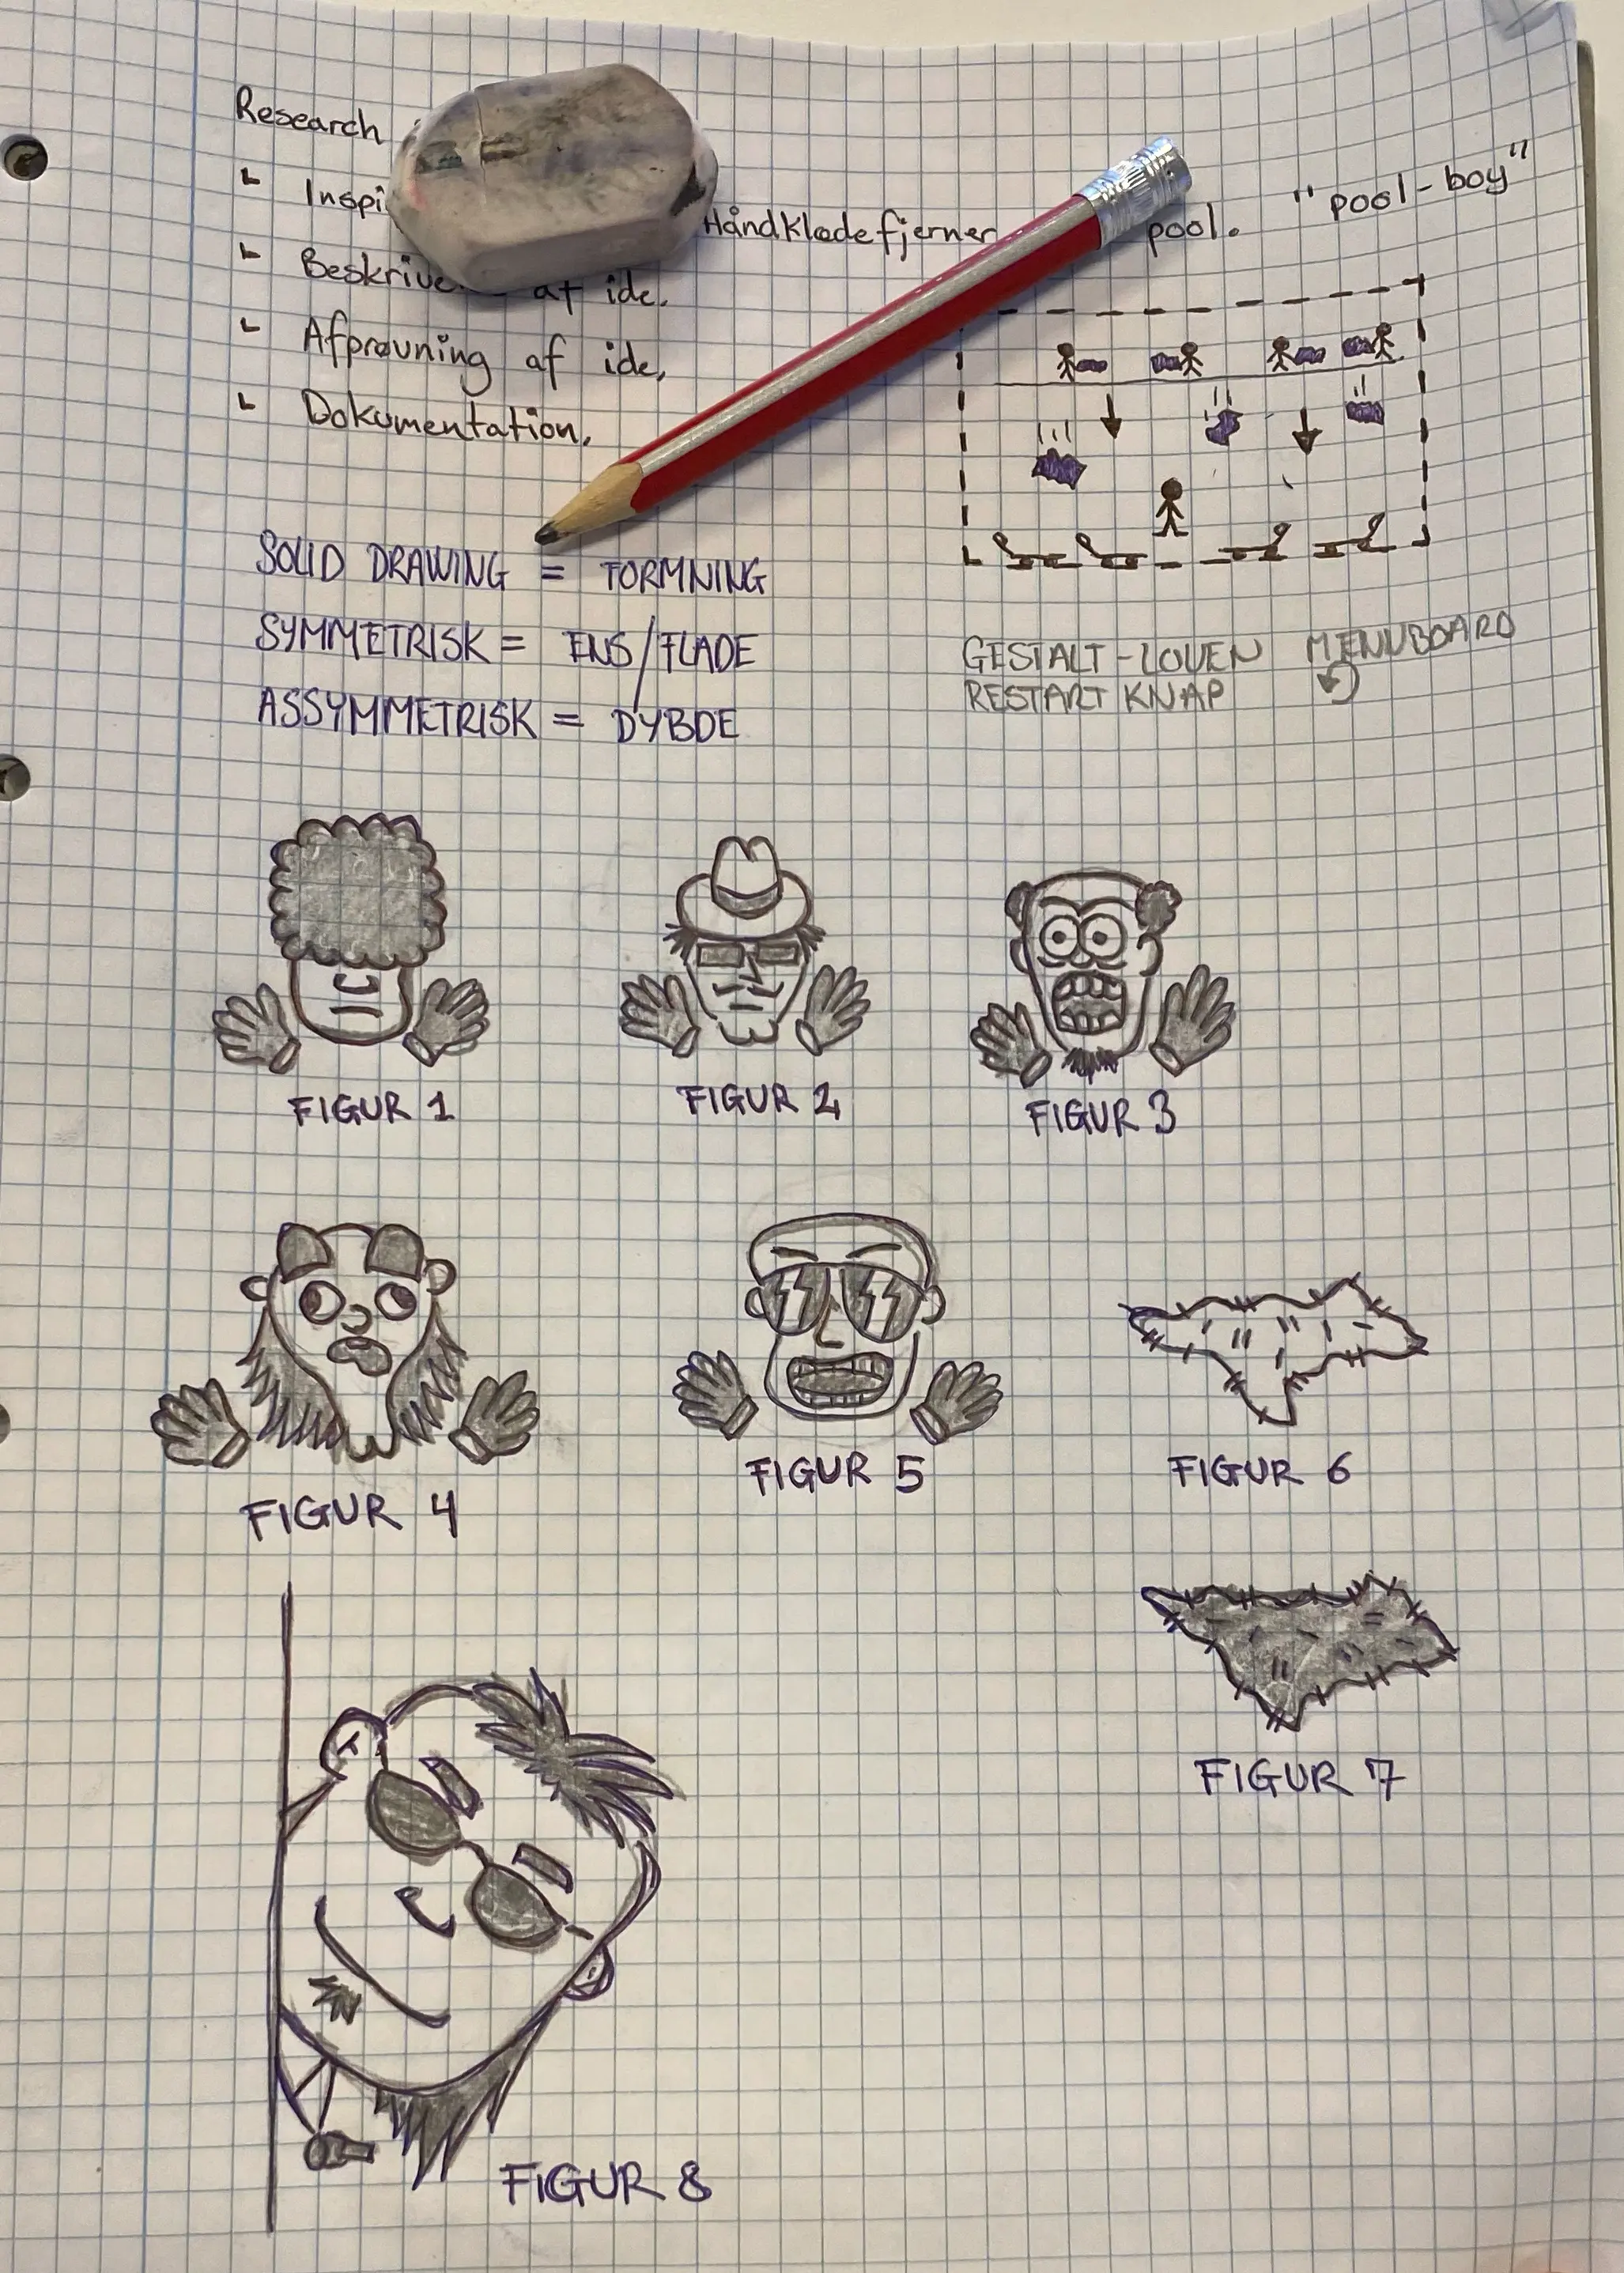 Research
Inspi Håndklædefjerner pool. "pool-boy"
Beskrive af ide.
Afprøvning af ide.
Dokumentation.
SOLID DRAWING = FORMNING
SYMMETRISK = ENS/FLADE
ASSYMMETRISK = DYBDE
GESTALT-LOVEN MENUBOARD
RESTART KNAP
FIGUR 1
FIGUR 2
FIGUR 3
FIGUR 4
FIGUR 5
FIGUR 6
FIGUR 7
FIGUR 8